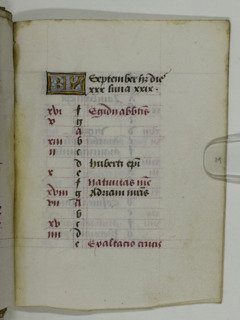 KL September ht dies
xxx luna xxix.
xvi f Egidii abbtis
v g
A
xiii b
ii c
d Huberti epi
x e
f Natiuitas mie
xviii g Adriani mris
vii A
b
xv c
iiii d
e Exaltacio crucis